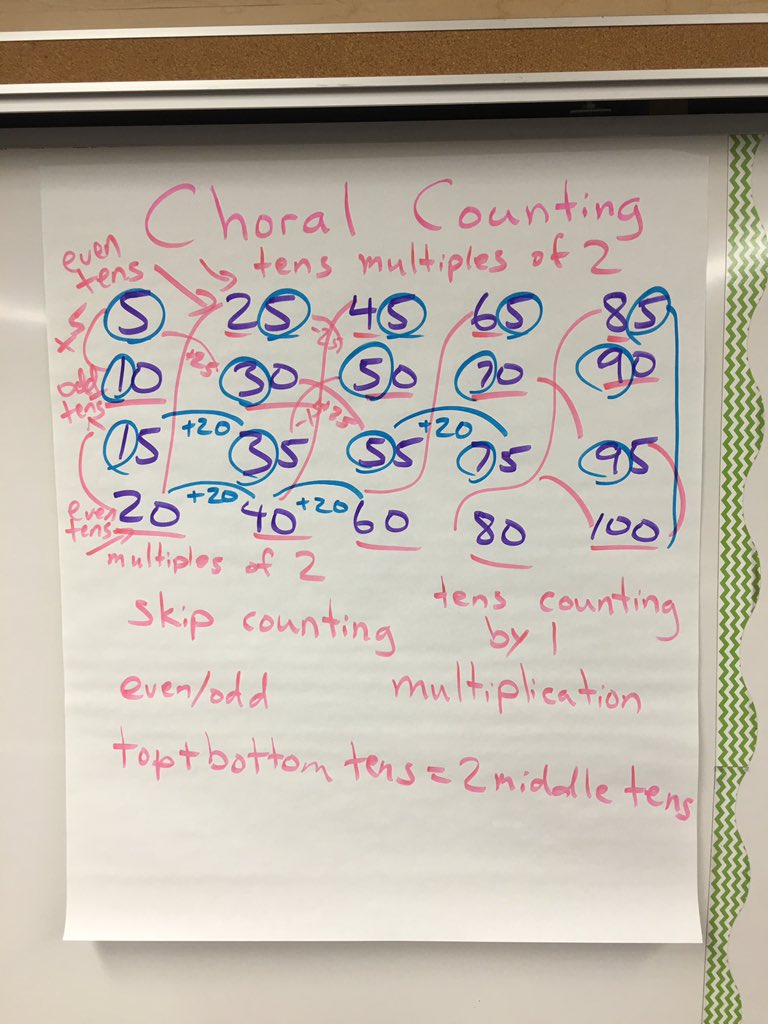 Choral Counting
even tens
tens multiples of 2
5 25 45 65 85
x5
+25
-25
10 30 50 70 90
odd tens
+25
15 35 55 75 95
+20
+20
20 40 60 80 100
even tens
+20
+20
multiples of 2
skip counting
tens counting by 1
even/odd
multiplication
top+bottom tens = 2 middle tens